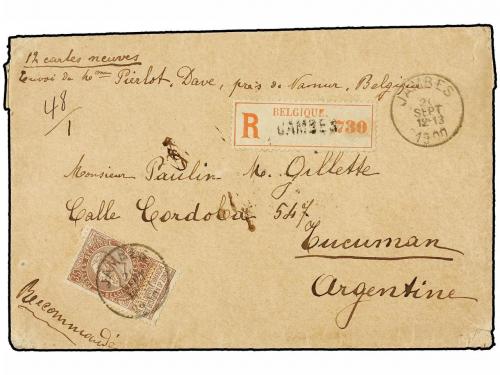 12 cartes neuves
Envoi de Mme Pierlot, Dave, près de Namur, Belgique
48
1
JAMBES
SEPT
12-13
1900
BELGIQUE.
R JAMBES 730
Monsieur Paulin M. Gillette
Calle Cordoba 547
Tucuman
Argentine
Recommandé